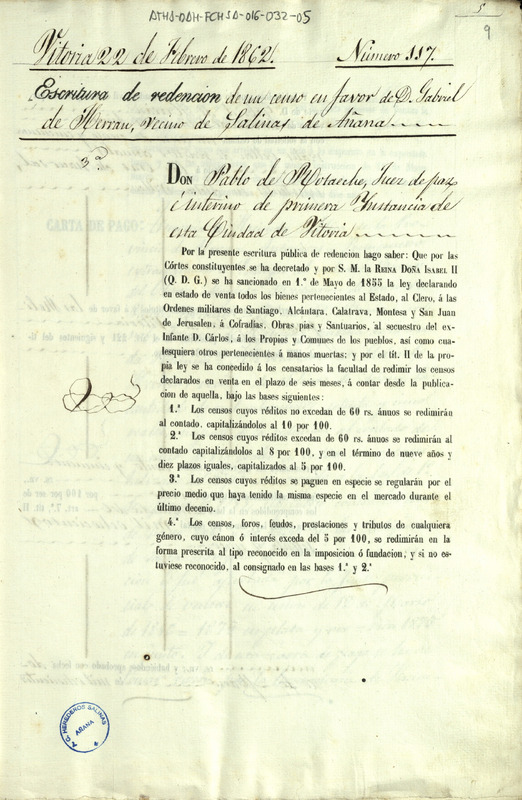 ATHA-DAH-FCHSA-016-032-05
5
9
Vitoria 22 de Febrero de 1862.
Número 117.
Escritura de redencion de un censo en favor de D. Gabriel
de Herran, vecino de Salinas de Añana
3ª
DON Pablo de Rotaeche, Juez de paz
é interino de primera Ynstancia de
esta Ciudad de Vitoria
Por la presente escritura pública de redencion hago saber: Que por las
Córtes constituyentes se ha decretado y por S. M. la REINA DOÑA ISABEL II
(Q. D. G.) se ha sancionado en 1.º de Mayo de 1855 la ley declarando
en estado de venta todos los bienes pertenecientes al Estado, al Clero, á las
Ordenes militares de Santiago, Alcántara, Calatrava, Montesa y San Juan
de Jerusalen, á Cofradías, Obras pias y Santuarios, al secuestro del ex-
Infante D. Cárlos, á los Propios y Comunes de los pueblos, así como cua-
lesquiera otros pertenecientes á manos muertas; y por el tít. II de la pro-
pia ley se ha concedido á los censatarios la facultad de redimir los censos
declarados en venta en el plazo de seis meses, á contar desde la publica-
cion de aquella, bajo las bases siguientes:
1.ª Los censos cuyos réditos no excedan de 60 rs. ánuos se redimirán
al contado, capitalizándolos al 10 por 100.
2.ª Los censos cuyos réditos excedan de 60 rs. ánuos se redimirán al
contado capitalizándolos al 8 por 100, y en el término de nueve años y
diez plazos iguales, capitalizados al 5 por 100.
3.ª Los censos cuyos réditos se paguen en especie se regularán por el
precio medio que haya tenido la misma especie en el mercado durante el
último decenio.
4.ª Los censos, foros, feudos, prestaciones y tributos de cualquiera
género, cuyo cánon ó interés exceda del 5 por 100, se redimirán en la
forma prescrita al tipo reconocido en la imposicion ó fundacion, y si no es-
tuviese reconocido, al consignado en las bases 1.ª y 2.ª
HEREDEROS SALINAS
AÑANA